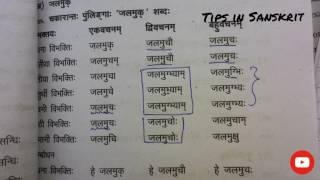 Tips in Sanskrit
जलमुक्
चकारान्तः पुंलिङ्गः 'जलमुक्' शब्दः
एकवचनम् द्विवचनम् बहुवचनम्
विभक्तिः जलमुक् जलमुचौ जलमुचः
विभक्तिः जलमुचम् जलमुचौ जलमुचः
विभक्तिः जलमुचा जलमुग्भ्याम् जलमुग्भिः
विभक्तिः जलमुचे जलमुग्भ्याम् जलमुग्भ्यः
विभक्तिः जलमुचः जलमुग्भ्याम् जलमुग्भ्यः
विभक्तिः जलमुचः जलमुचोः जलमुचाम्
विभक्तिः जलमुचि जलमुचोः जलमुक्षु
हे जलमुक् हे जलमुचौ हे जलमुचः